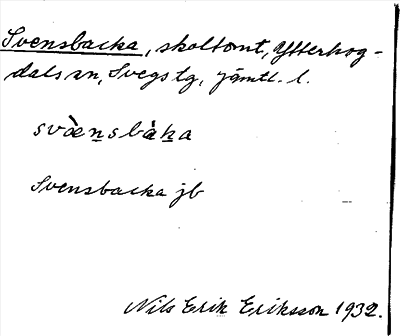 Svensbacka, skoltomt, Ytterhog-
dals sn, Svegs tg, Jämtl. l.
svæ̀n̲sbàk̲a
Svensbacka jb
Nils Erik Eriksson 1932.